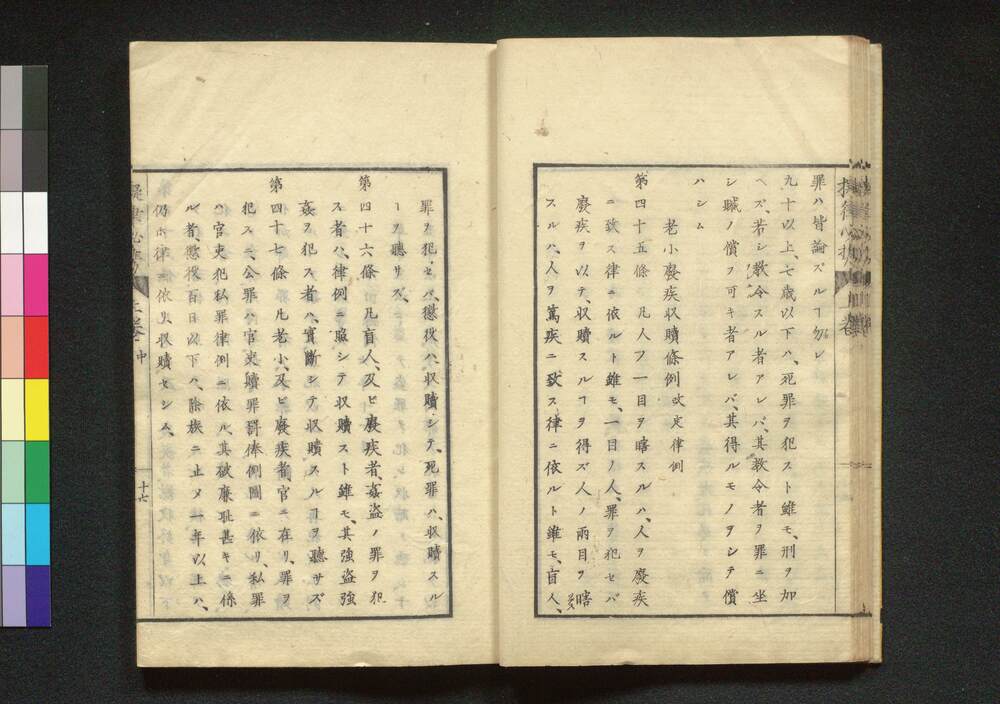 罪ハ皆論ズルヿ勿レ
九十以上、七歳以下ハ、死罪ヲ犯スト雖モ、刑ヲ加
ヘズ、若シ教令スル者アレバ、其教令者ヲ罪ニ坐
シ贓ノ償フ可キ者アレバ、其得ルモノヲシテ償
ハシム
老小廢疾収贖條例 改定律例
第四十五條 凡人ノ一目ヲ瞎スルハ、人ヲ廢疾
ニ致ス律ニ依ルト雖モ、一目ノ人、罪ヲ犯セバ
廢疾ヲ以テ、収贖スルヿヲ得ズ人ノ兩目ヲ瞎
スルハ、人ヲ篤疾ニ致ス律ニ依ルト雖モ、盲人、
罪ヲ犯セバ、懲役ハ、収贖シテ、死罪ハ、収贖スル
ヿヲ聽サズ、
第四十六條 凡盲人、及ビ廢疾者、姦盗ノ罪ヲ犯
ス者ハ、律例ニ照シテ収贖スト雖モ、其強盗強
姦ヲ犯ス者ハ、實斷シテ収贖スルヿヲ聽サズ
第四十七條 凡老小、及ビ廢疾者、官ニ在リ、罪ヲ
犯スニ、公罪ハ官吏贖罪罰俸例圖ニ依リ、私罪
ハ官吏犯私罪律例ニ依ル、其破廉耻甚キニ係
ル者、懲役百日以下ハ、除族ニ止メ一年以上ハ、
仍ホ律ニ依リ収贖セシム、
二卷 中
十七